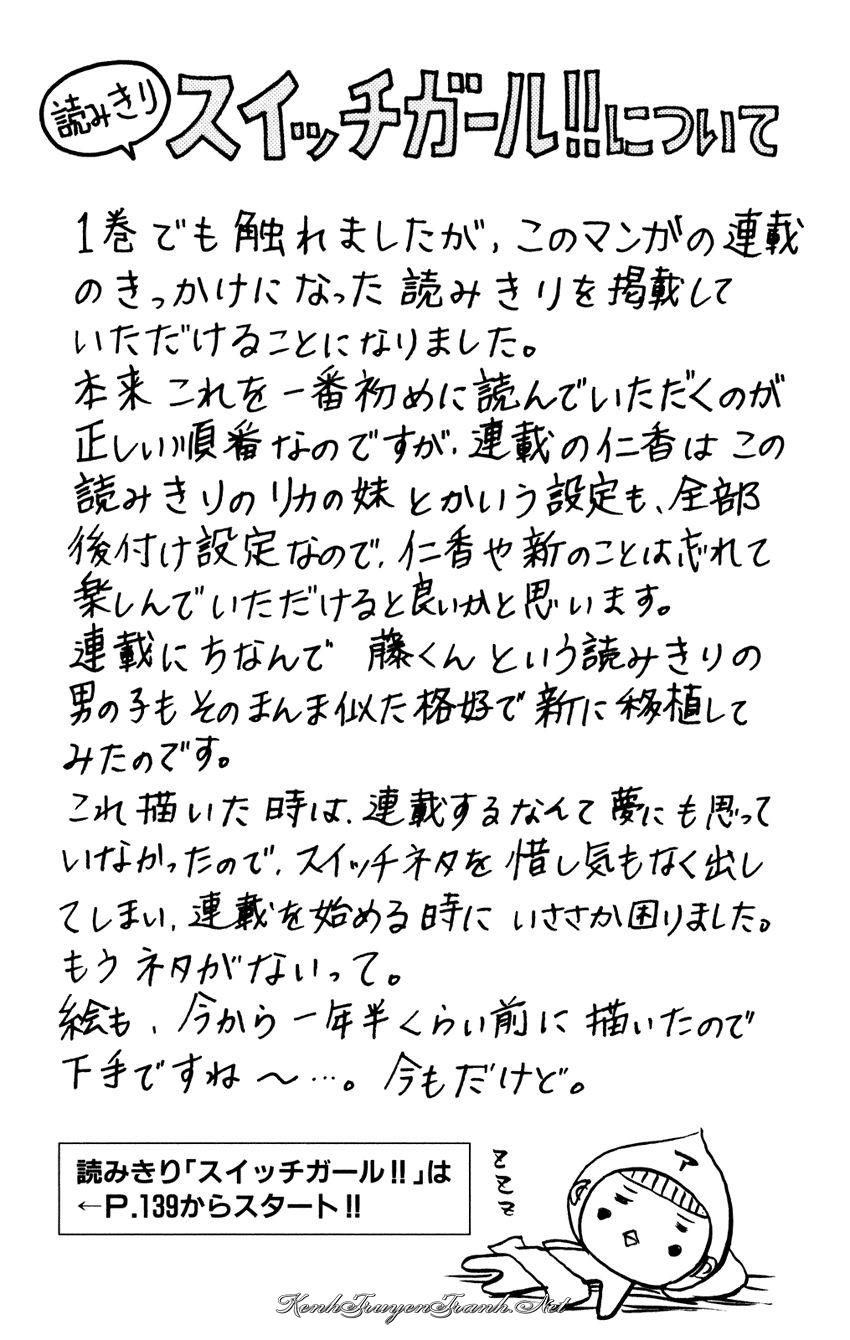 読みきり
スイッチガール!!について
1巻でも触れましたが、このマンガの連載
のきっかけになった読みきりを掲載して
いただけることになりました。
本来これを一番初めに読んでいただくのが
正しい順番なのですが、連載の仁香はこの
読みきりのリカの妹とかいう設定も、全部
後付け設定なので、仁香や新のことは忘れて
楽しんでいただけると良いかと思います。
連載にちなんで 藤くんという読みきりの
男の子もそのまんま似た格好で新に移植して
みたのです。
これ描いた時は、連載するなんて夢にも思って
いなかったので、スイッチネタを惜し気もなく出し
てしまい、連載を始める時にいささか困りました。
もうネタがないって。
絵も、今から一年半くらい前に描いたので
下手ですね〜…。今もだけど。
読みきり「スイッチガール!!」は
←P.139からスタート!!
ア
KenhTruyenTranh.Net